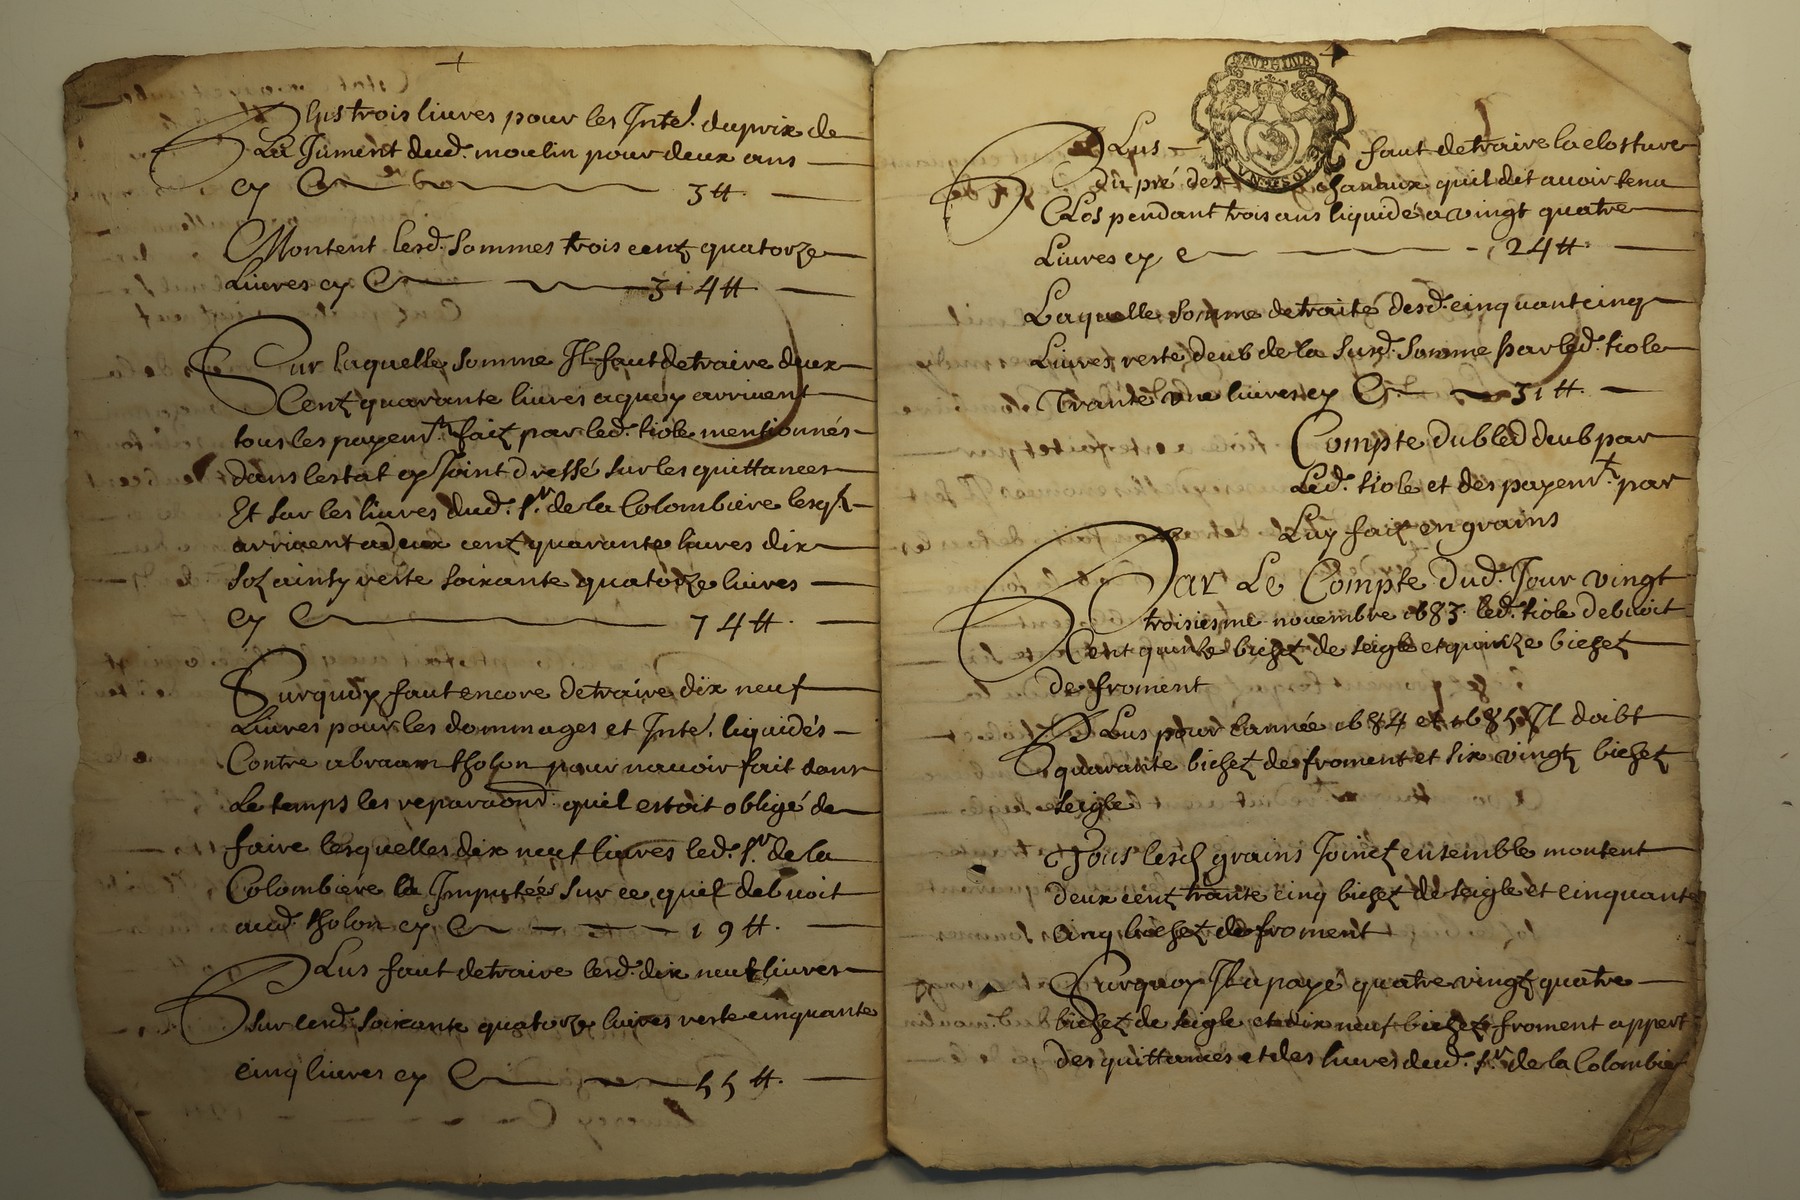 Plus trois liures pour les Inte. du prix de
La Jument dud. moulin pour deux ans
cy 3 tt
Montent lesd. sommes trois centz quatorze
Liures cy 314 tt
Sur laquelle somme Il faut detraire deux
Centz quarante liures a quoy arriuent
tous les payemt. faitz par led. tiole mentionnés
dans lestat cy joint dressé sur les quittances
Et sur les liures dud. sr. de la Colombiere lesq.
arriuent a deux centz quarante liures dix
solz ainsy reste soixante quatorze liures
cy 74 tt
Surquoy faut encore detraire dix neuf
Liures pour les dommages et Inte. liquidés
Contre abraam tholon pour nauoir fait dans
Le temps les reparaons quil estoit obligé de
faire lesquelles dix neuf liures led. sr. de la
Colombiere la Imputées sur ce quil debuoit
aud. tholon cy 19 tt
Plus faut detraire lesd. dix neuf liures
sur lesd. soixante quatorze liures reste cinquante
cinq liures cy 55 tt
DAVPHINE
Plus faut detraire la closture
du pré des chanaux quil dit auoir tenu
Clos pendant trois ans liquidé a vingt quatre
Liures cy 24 tt
Laquelle somme detraité desd. cinquant cinq
Liures reste deub de la susd. somme par led. tiole
Trante Vne liures cy 31 tt
Compte du bled deub par
Led. tiole et des payemt. par
Luy faitz en grains
Par Le Compte dud. Jour vingt
troisiesme nouembre 1683 led. tiole debuoit
Cent quinze bichetz de seigle et quinze bichetz
de froment
Plus pour lannée 1684 et 1685 Il doibt
quarante bichetz de froment et six vingtz bichetz
seigle
Tous lesd. grains Joinctz ensemble montent
deux centz trante cinq bichetz de seigle et cinquante
cinq bichetz de froment
Surquoy Il a payé quatre vingtz quatre
bichetz de seigle et dix neuf bichetz froment appert
des quittances et des liures dud. sr. de la Colombiere